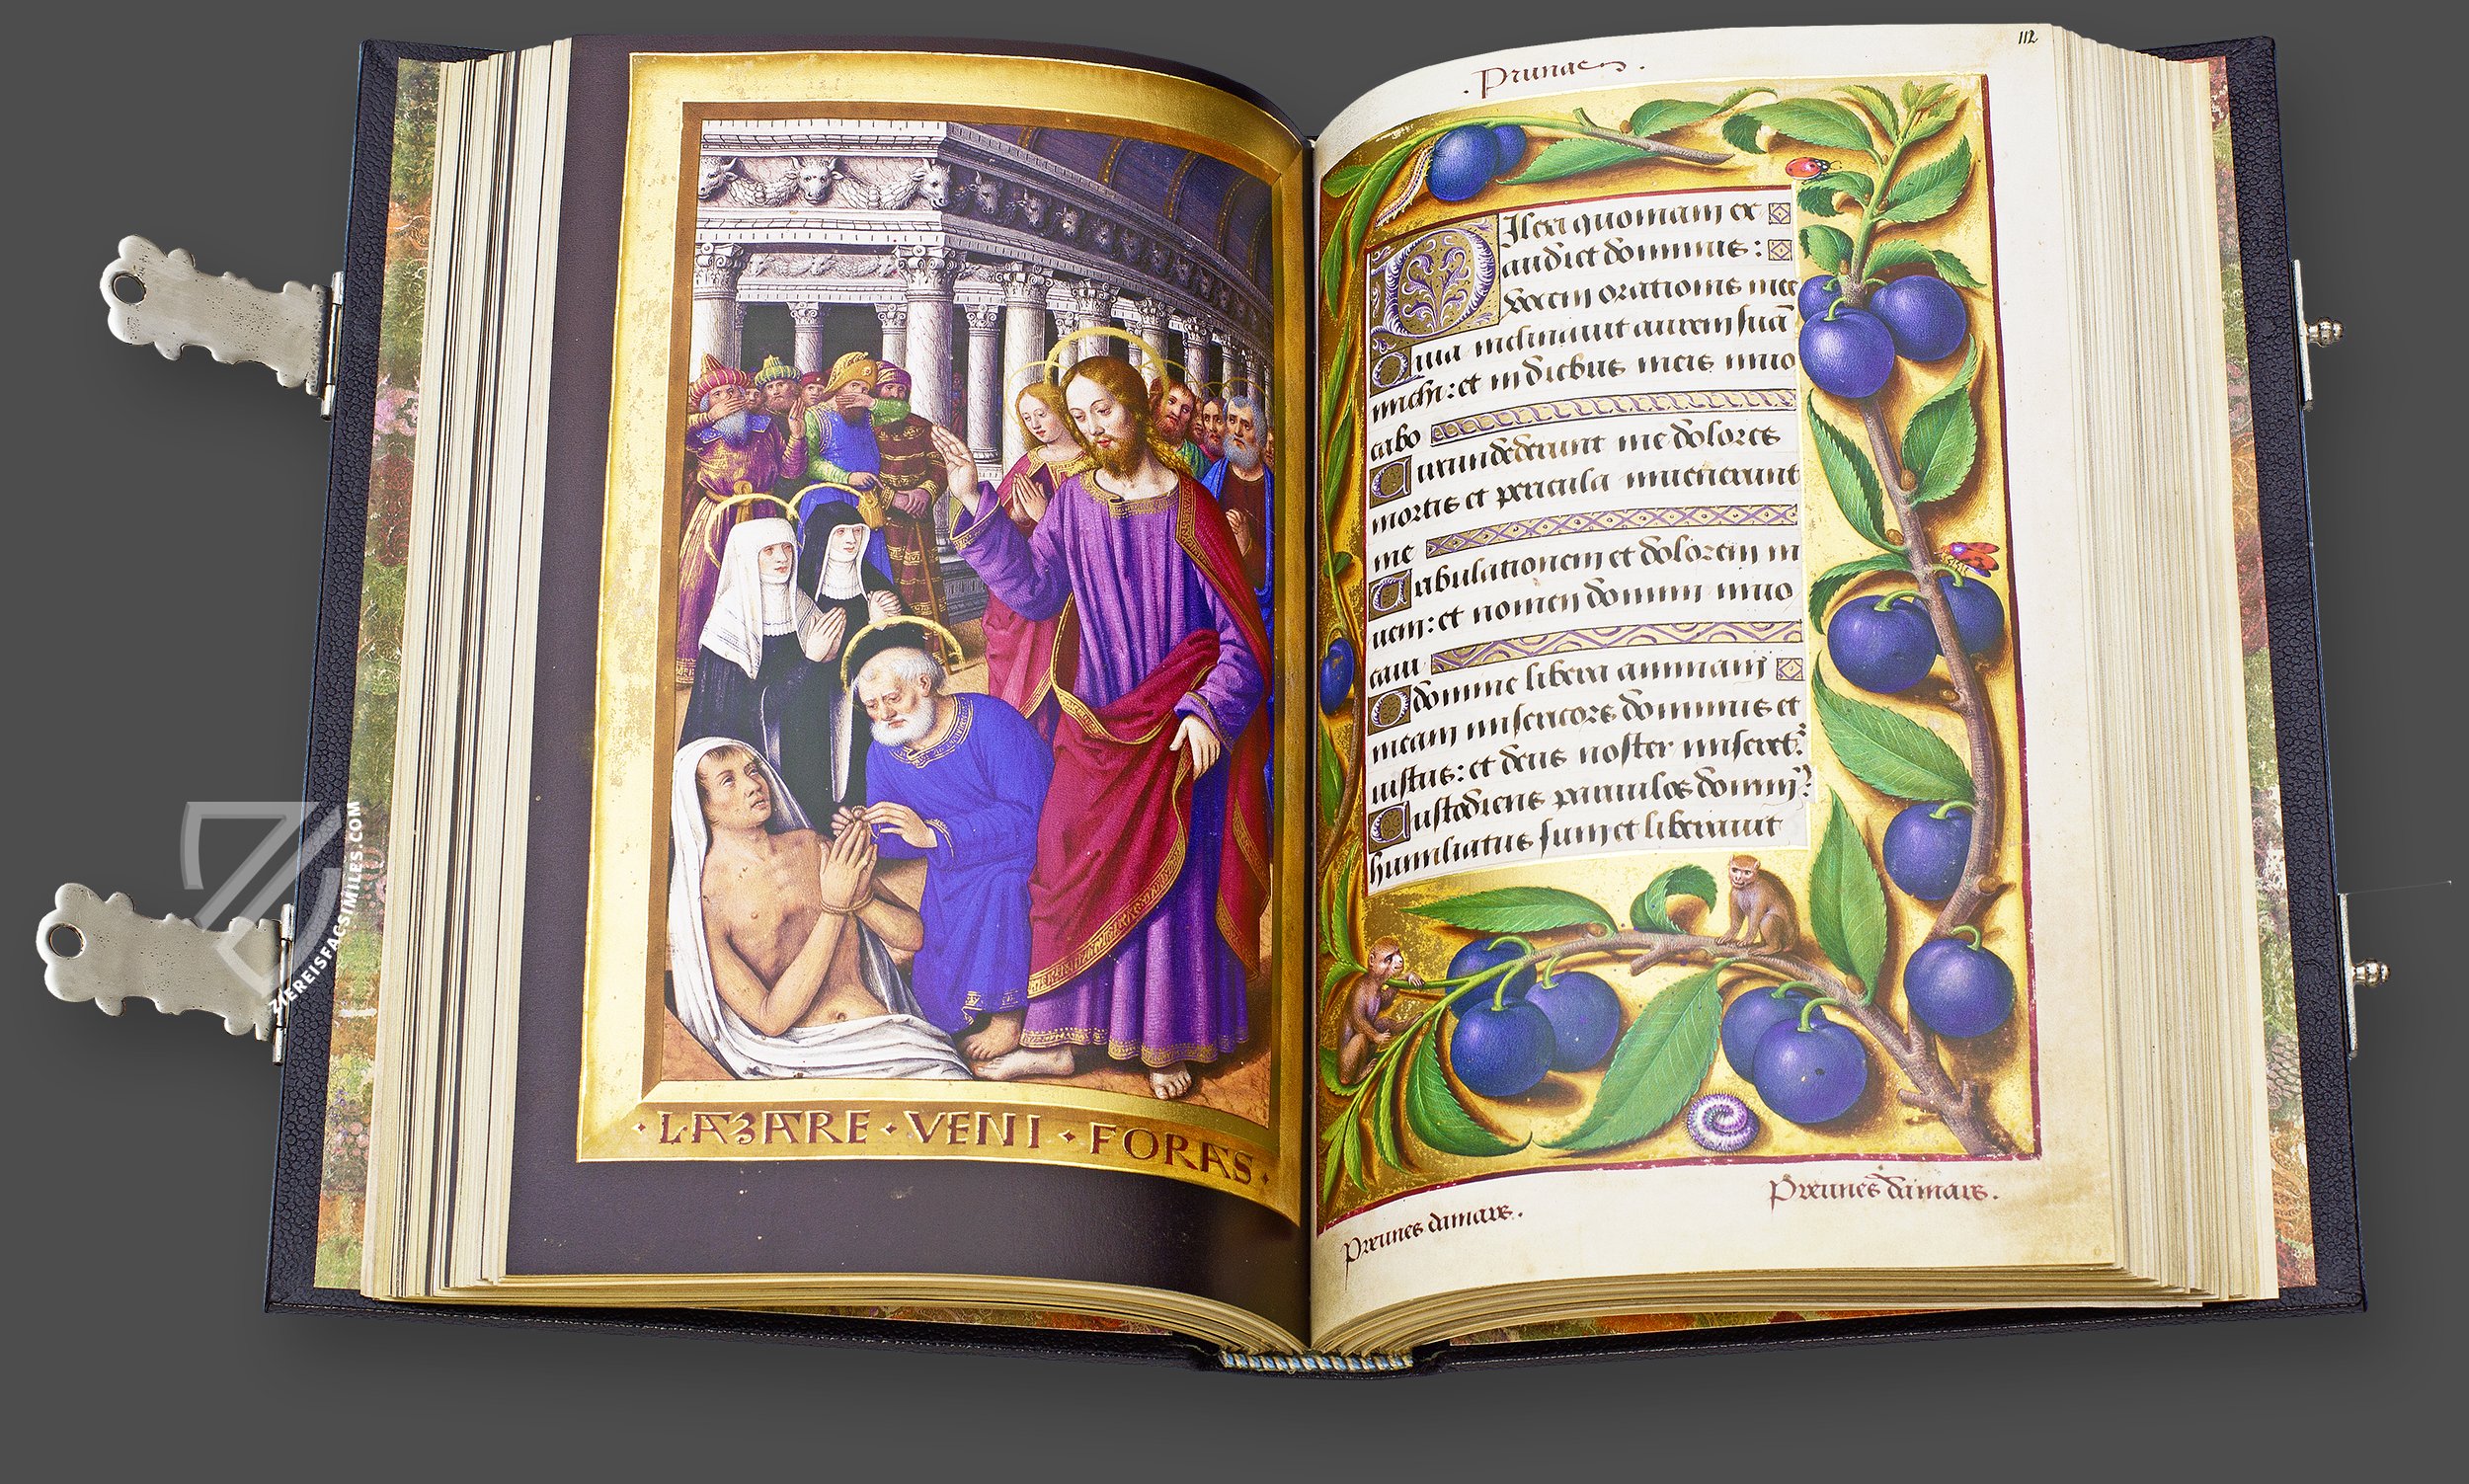 · LAZARE · VENI · FORAS ·
112
. Prunae .
Dilexi quoniam ex
audiet dominus :
vocem orationis mee
Quia inclinauit aurem suā
michi : et in diebus meis inuo
cabo
Circundederunt me dolores
mortis et pericula inuenerunt
me
Tribulationem et dolorem in
ueni : et nomen domini inuo
caui
O domine libera animam
meam misericors dominus et
iustus : et deus noster miseret~
Custodiens paruulos domin~
humiliatus sum et liberauit
Preunes damars .
Preunes damars .
ZIEREISFACSIMILES.COM